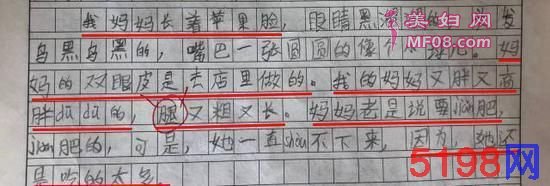 我妈妈长着苹果脸，眼睛黑
美妇网
MF08.com
乌黑乌黑的，嘴巴一张圆圆的像个
妈
妈的双眼皮是去店里做的。我的妈妈又胖又高
胖dū dū的，腿又粗又长。妈妈老是说要jiǎn肥，
jiǎn肥的，可是，她一直shòu不下来，因为，她还
是吃的太多。
5198网